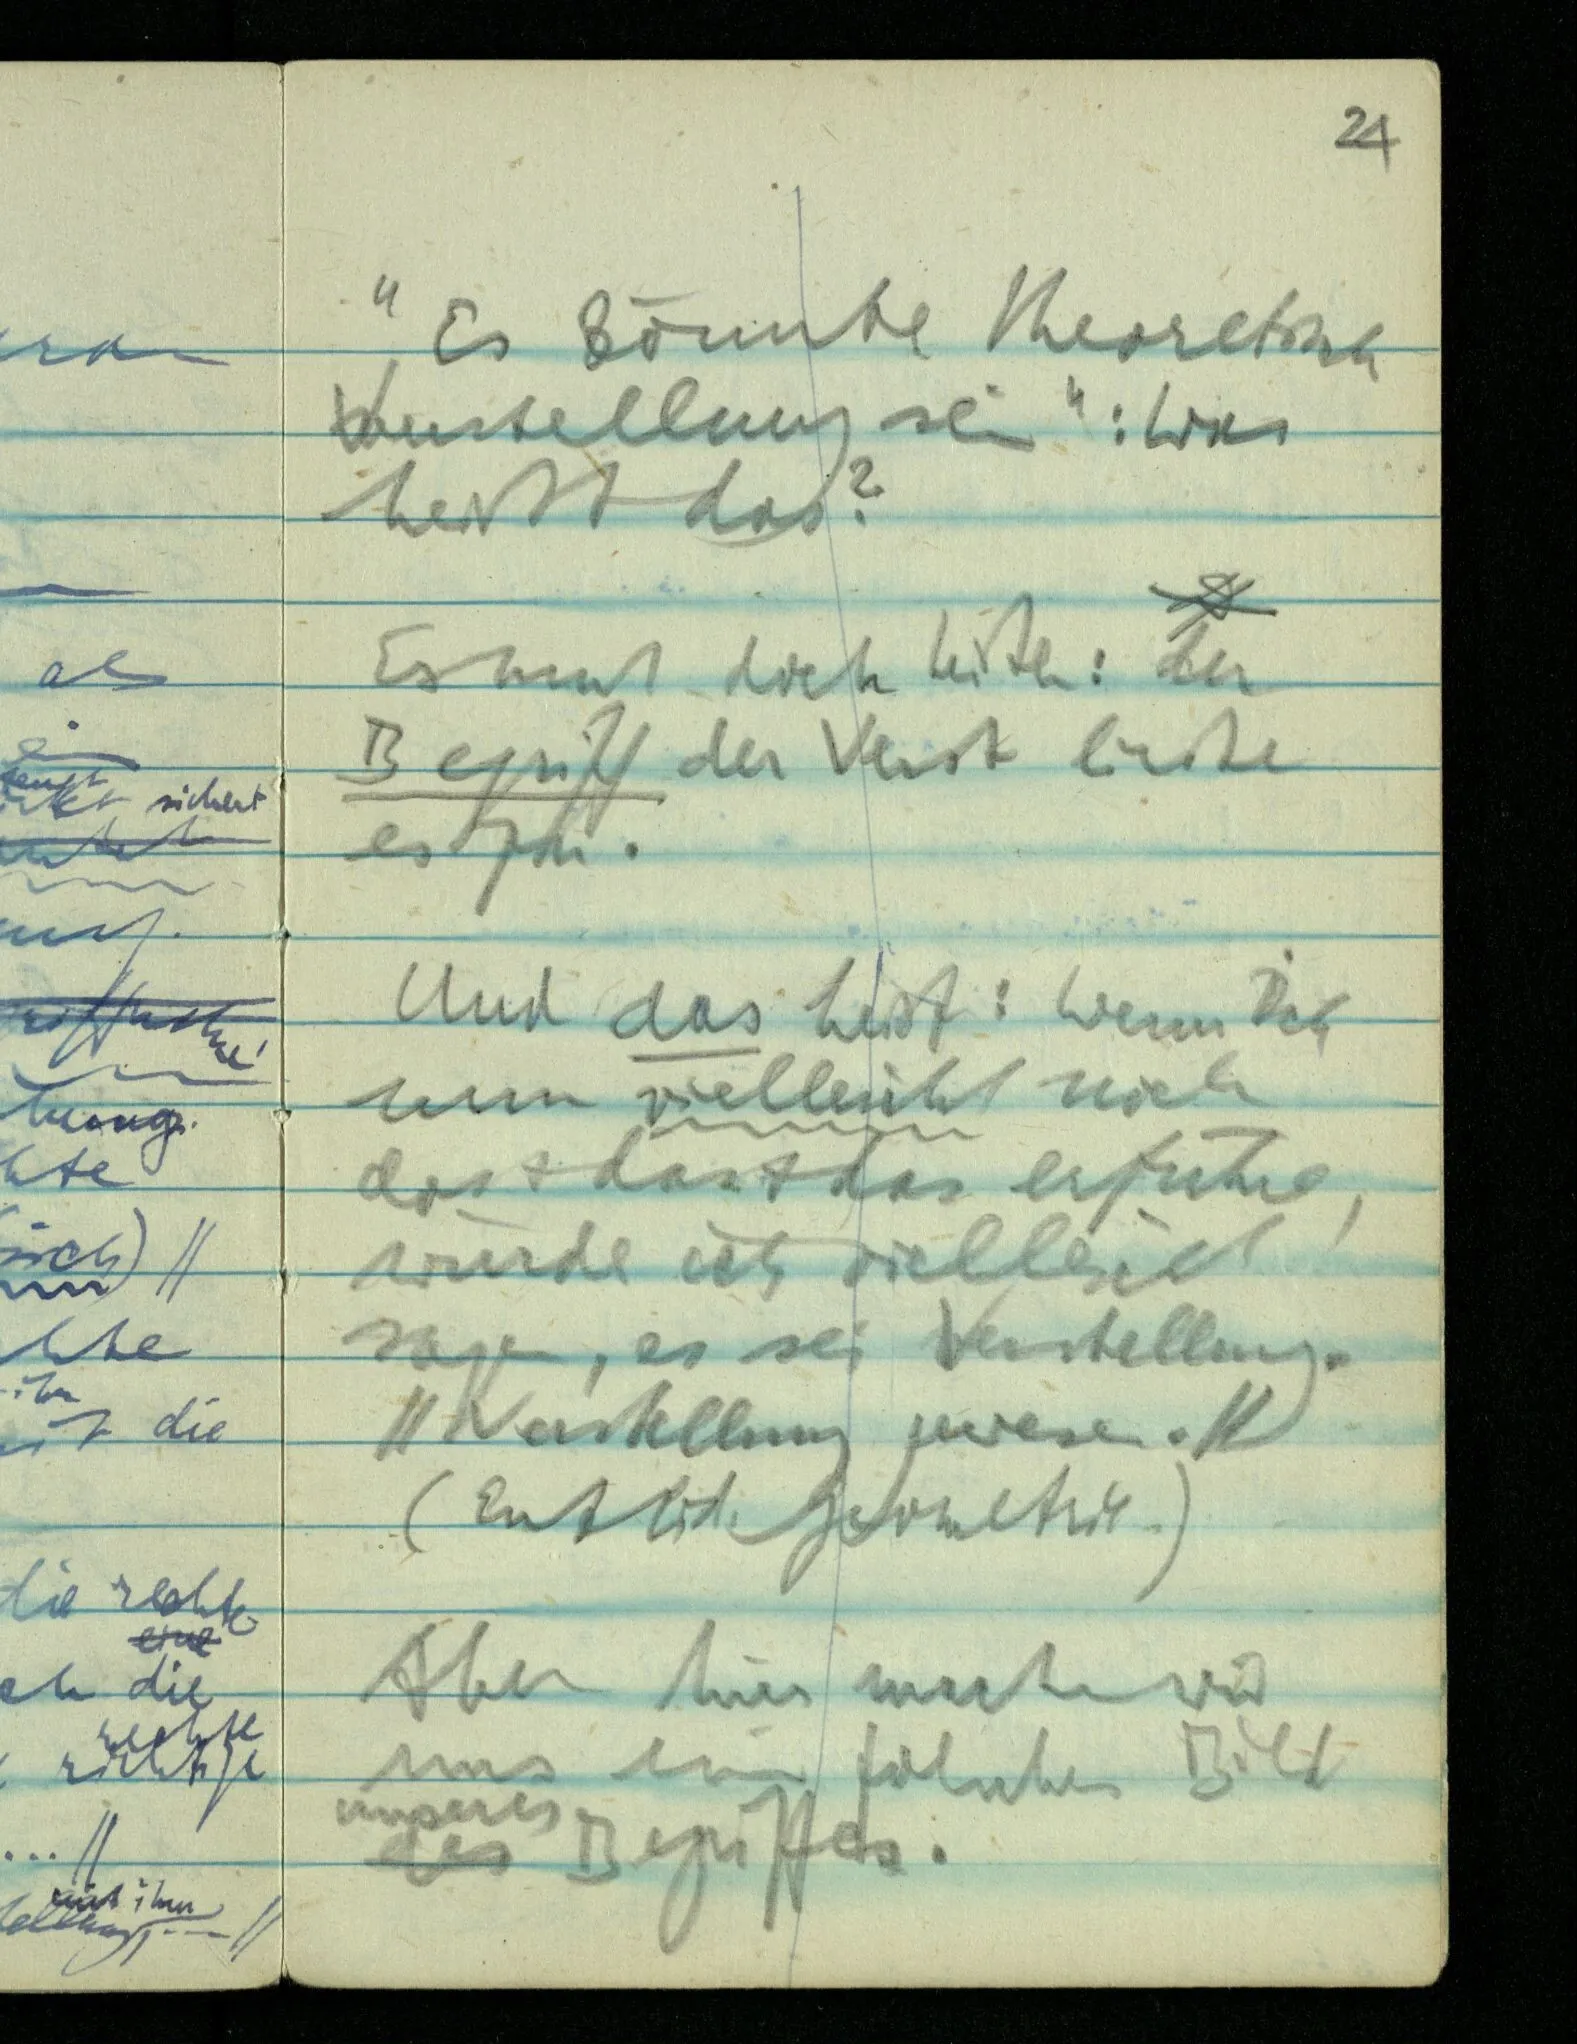 24
"Es könnte theoretisch
Verstellung sein": Was
heißt das?
Es muß doch heißen: der
Begriff der Verst ließe
es zu.
Und das heißt: Wenn ich
nun vielleicht noch
das & das & das erführe,
würde ich vielleicht
sagen, es sei Verstellung.
// Verstellung gewesen. //
(Euklid. Geometrie.)
Aber hier machen wir
uns ein falsches Bild
unseres
des Begriffes.
als
sichert
die
die rechte
eine
die
rechte
richtige
... //
mit ihm